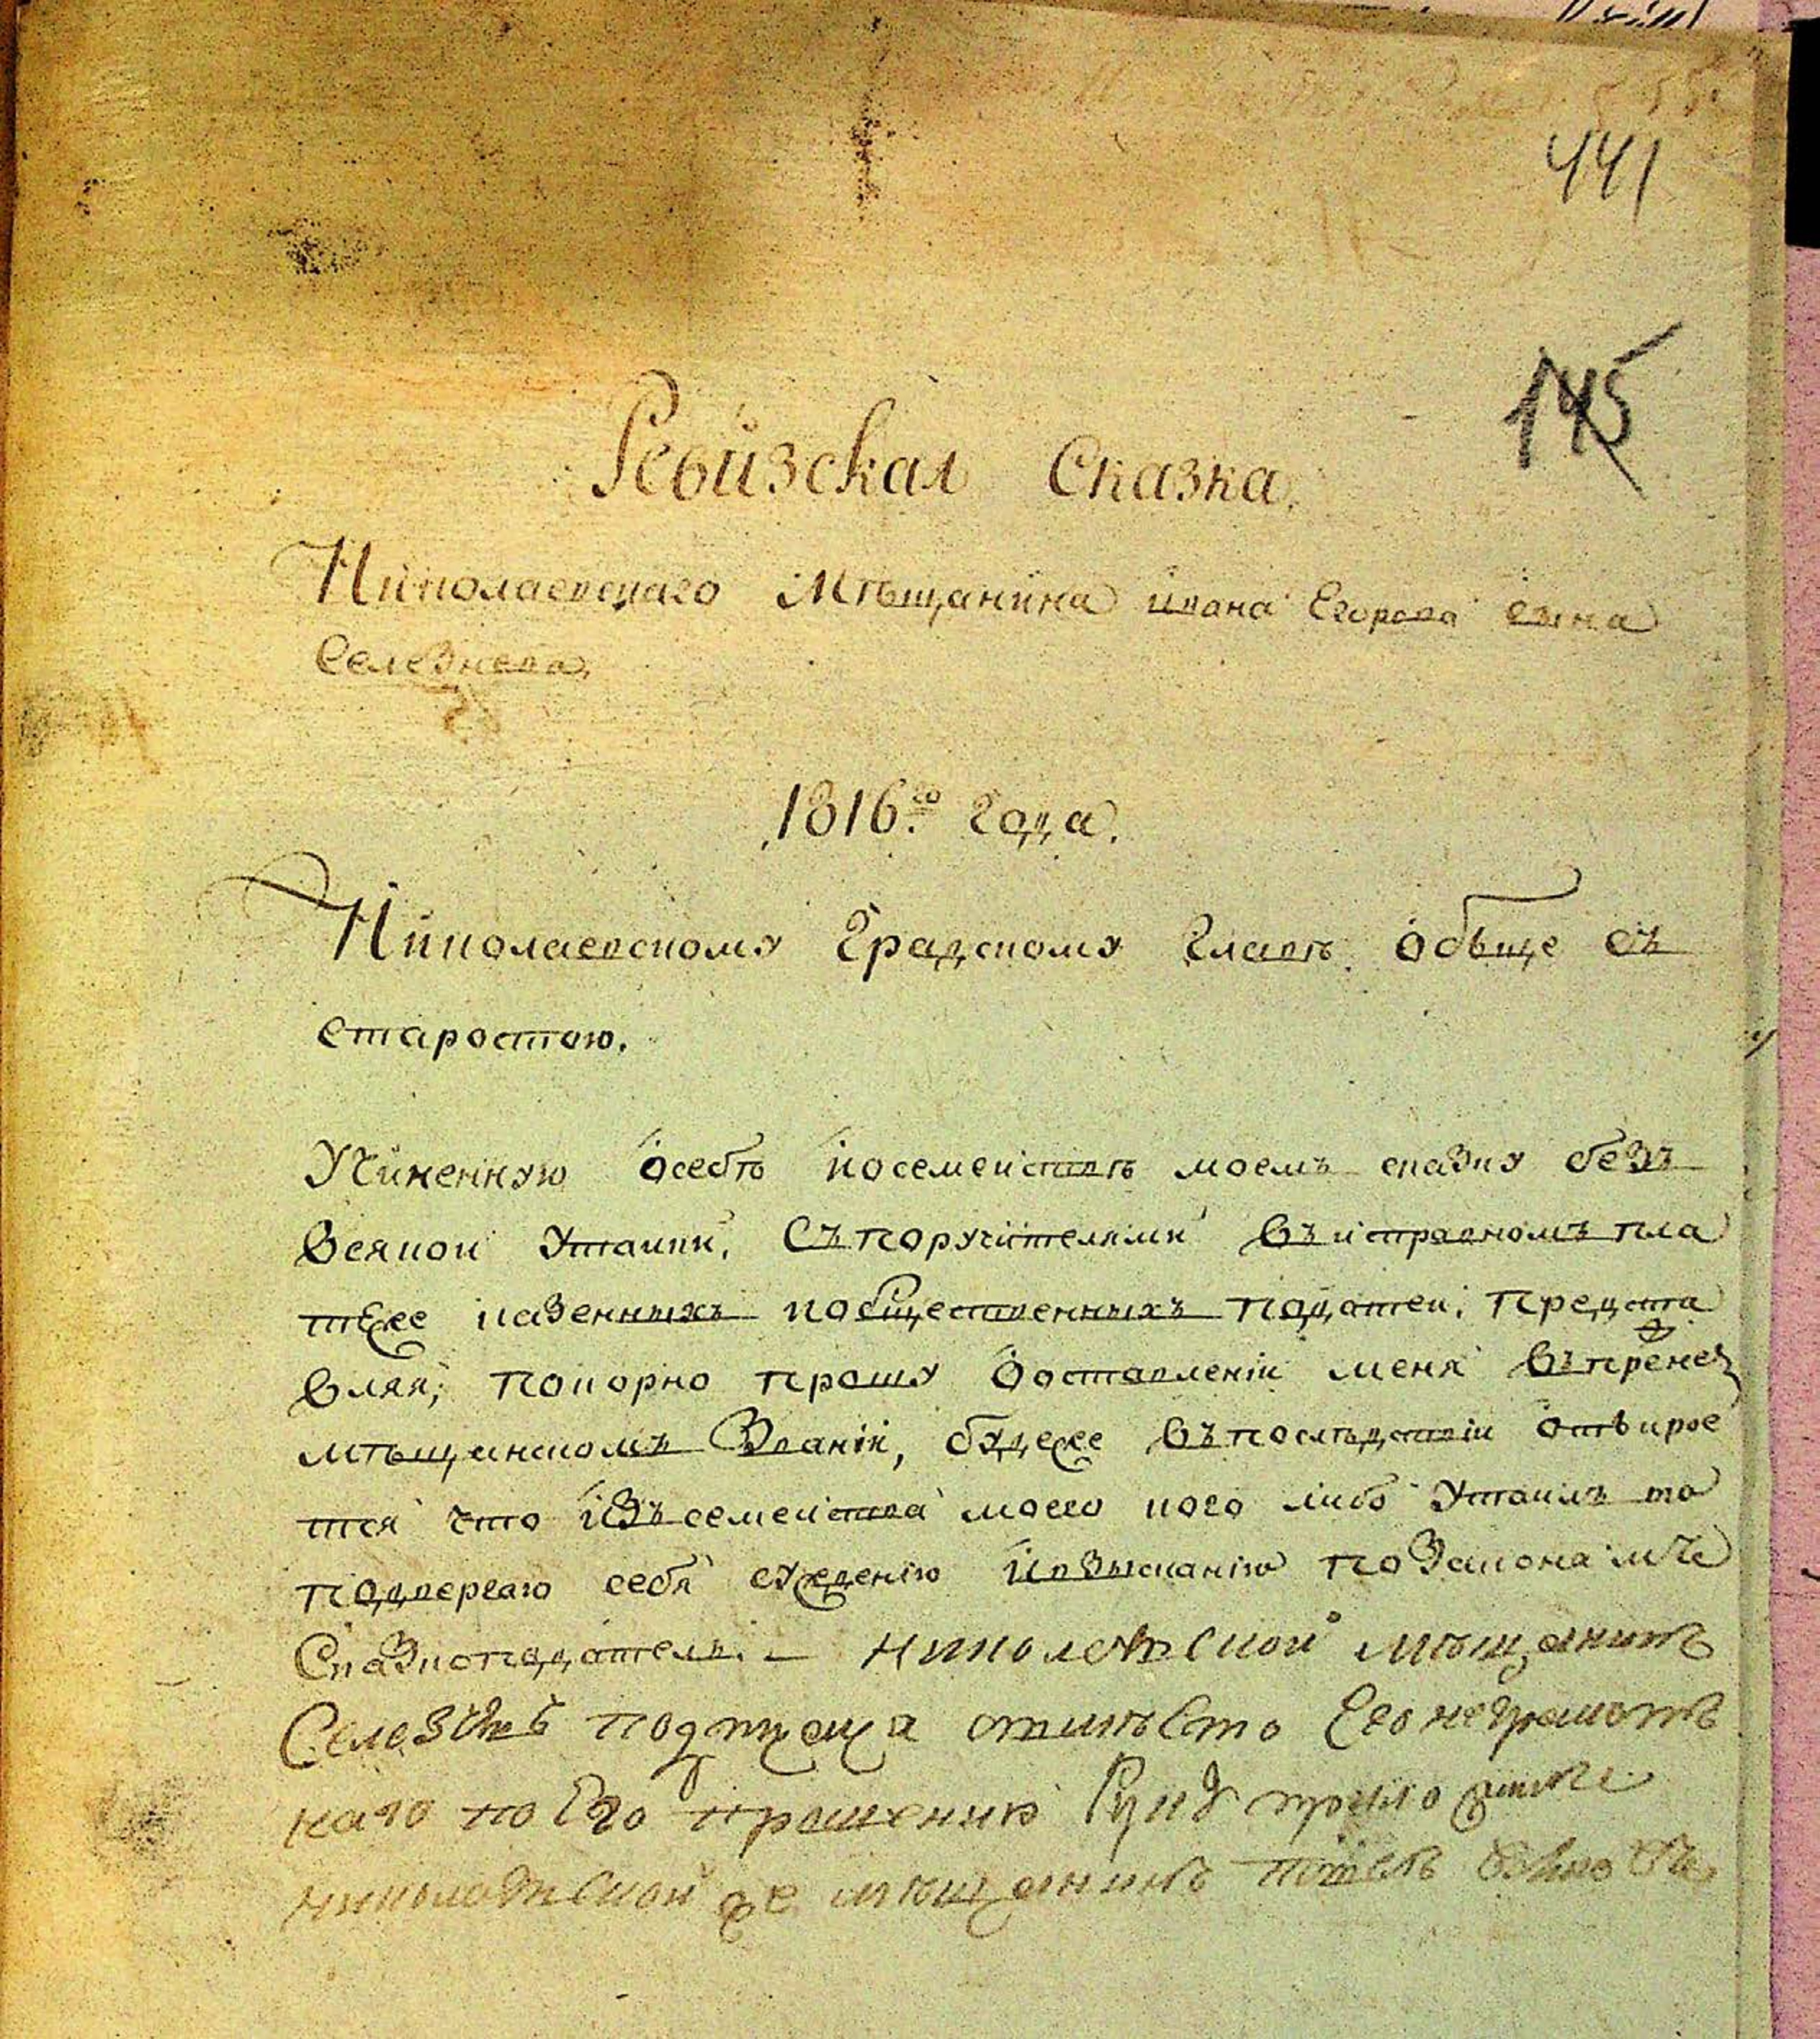 441
145
Ревизская Сказка.
Николаевскаго Мѣщанина ивана Егорова сына
Селезнева,
1816.го Года.
Николаевскому Градскому Главѣ обьще съ
старостою.
Учиненную осебѣ иосемеиствѣ моемъ сказку безъ
Всякои Утаики, Съпоручителями Въисправномъ пла
теже казенныхъ иобщественныхъ податеи, предста
вляя, покорно прошу Ооставленіи меня Въпреже
мѣщанскомъ Званіи, будеже Въпослѣдствіи откъкрое
тся что изъсемеиства моего кого либо Утаилъ то
подвергаю себя сужденію ивзысканію поЗакона мъ
Сказкоподатель. — николаевской мѣщанинъ
Селез подпе вмѣсто Его неграмот
наго по Его прошению Руку приложилъ
николаевской же мѣщанинъ